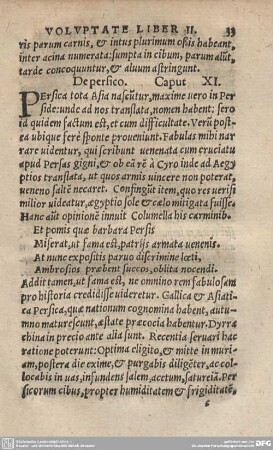 VOLVPTATE LIBER II. 33
ris parum carnis, & intus plurimum oßis habeant,
inter acina numerata: sumpta in cibum, parum alūt,
tarde concoquuntur, & aluum astringunt.
De persico. Caput XI.
PErsica tota Asia nascūtur, maxime uero in Per
side: unde ad nos translata, nomen habent: sero
id quidem factum est, et cum difficultate. Verū post
ea ubique ferè sponte proueniunt. Fabulas mihi nar
rare uidentur, qui scribunt uenenata cum cruciatu
apud Persas gigni, & ob eā rē à Cyro inde ad Aegy
ptios translata, ut quos armis uincere non poterat,
ueneno saltē necaret. Confingūt item, quo res uerisi
milior uideatur, ægyptio sole & cælo mitigata fuisse.
Hanc aūt opinionē innuit Columella his carminib.
Et pomis quæ barbara Persis
Miserat, ut fama est, patrijs armata uenenis.
At nunc expositis paruo discrimine lœti,
Ambrosios præbent succos, oblita nocendi.
Addit tamen, ut fama est, ne omnino rem fabulosam
pro historia credidisse uideretur. Gallica & Asiati
ca Persica, quæ nationum cognomina habent, autu-
mno maturescunt, æstate præcocia habentur. Dyrra
china in precio ante alia sunt. Recentia seruari hac
ratione poterunt: Optima eligito, & mitte in muri-
am, postera die exime, & purgabis diligēter, ac col-
locabis in uas, infundens salem, acetum, satureiā. Per
sicorum cibus, propter humiditatem & frigiditatē,